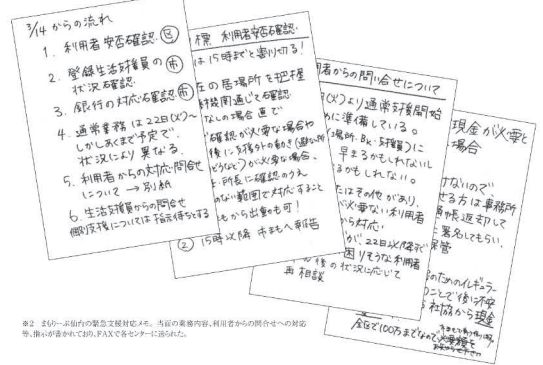 3/14 からの流れ
1. 利用者安否確認 区
2. 登録生活支援員の
状況確認 市
3. 銀行の対応確認 市
4. 通常業務は22日(火)〜
しかしあくまで予定で、
状況により異なる
5. 利用者からの対応・問合せ
について → 別紙
6. 生活支援員からの問合せ
個別支援については指示待ちとする
標 利用者安否確認
は 15時までと割り切る!
在の居場所を把握
機関通じて確認
なしの場合 直で
確認が必要な場合や
後に時間外の動き
が必要な場合、
所長に確認のうえ
のない範囲で対応すること
もから出重も可!
② 15時以降 市まもへ報告
者からの問い合せについて
(火)より通常支援開始
めに準備している。
早まるかもしれないし
るかもしれない。
たはその他があり、
が必要ない利用者
から対応
が、22日以降で
困りそうな利用者
後の状況に応じて
再相談
現金が必要と
場合
けないので
せる方は事務所
帳返却して
に署名してもらい、
保管
のためのイレギュラー
のことで後に不安
社協から現金
全区で100万までなので必要額を
※2　まもりーぶ仙台の緊急支援対応メモ。当面の業務内容、利用者からの問合せへの対応
等、指示が書かれており、FAXで各センターに送られた。